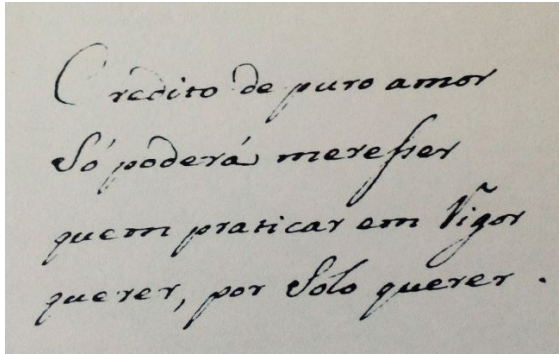 Credito de puro amor
Só poderá meresser
quem praticar em Vigor
querer, por Solo querer.